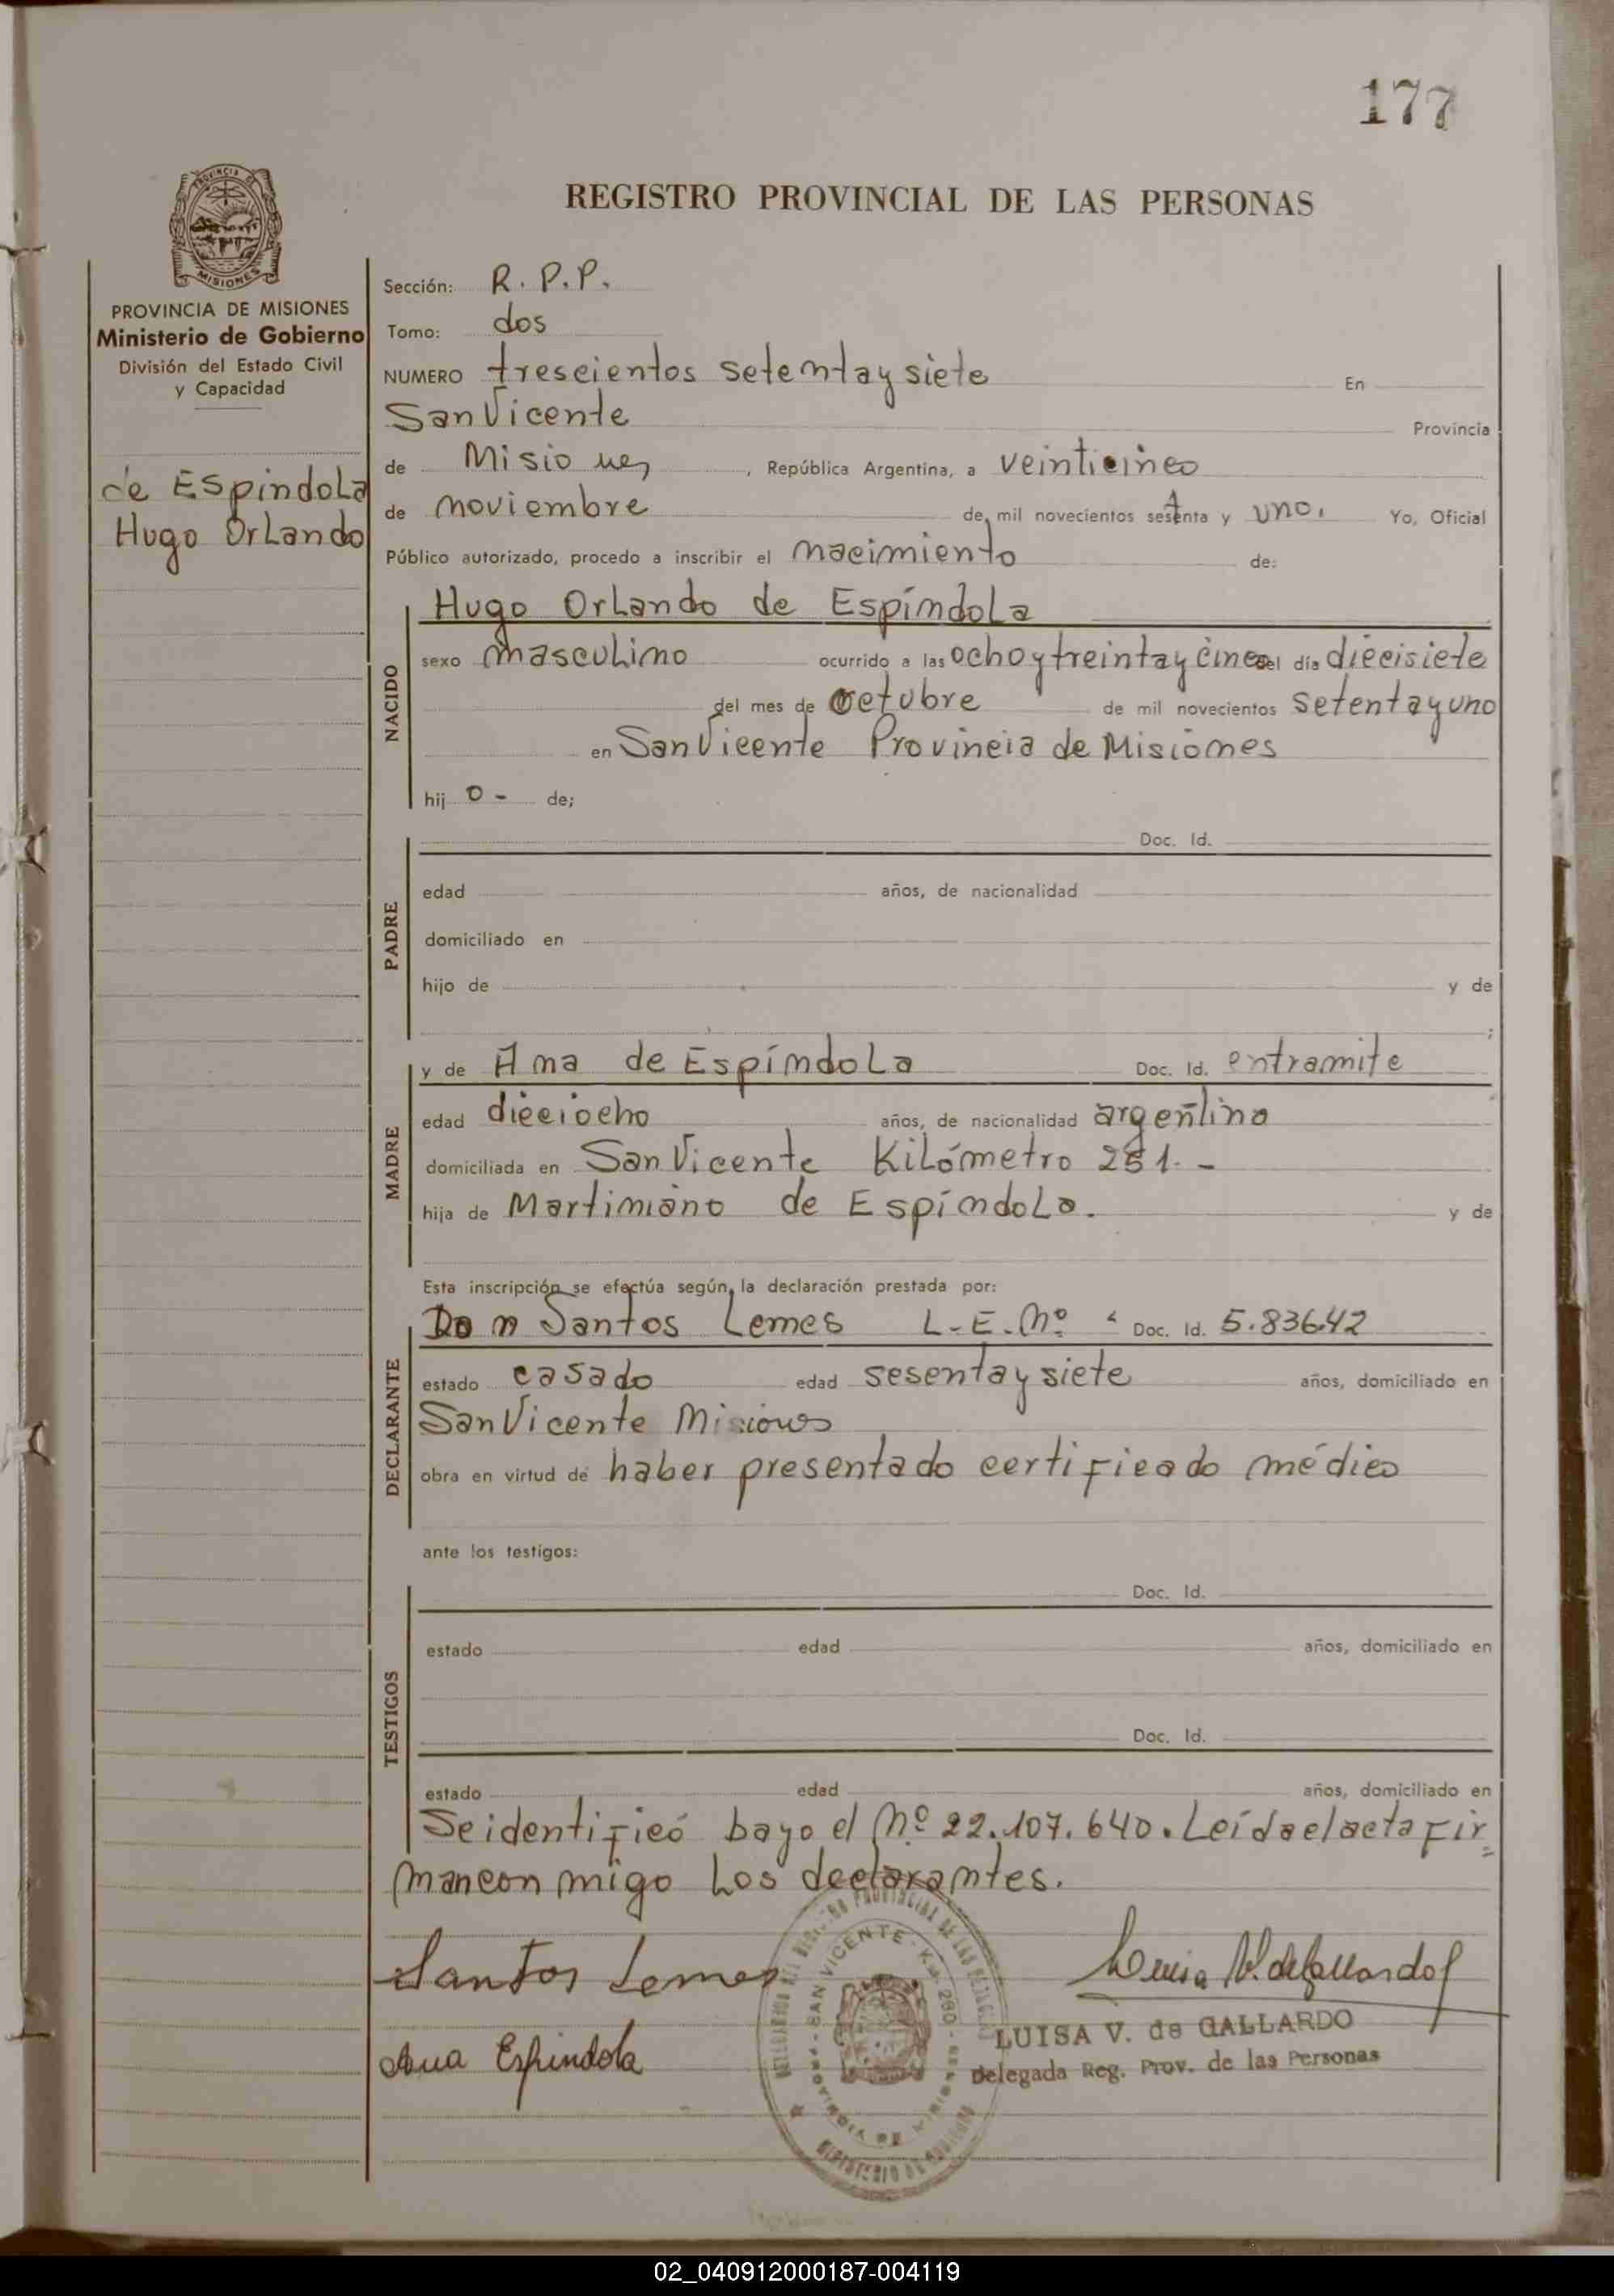 177
REGISTRO PROVINCIAL DE LAS PERSONAS
PROVINCIA DE
MISIONES
PROVINCIA DE MISIONES
Ministerio de Gobierno
División del Estado Civil
y Capacidad
de Espindola
Hugo Orlando
Sección: R. P. P.
Tomo: dos
NUMERO trescientos setenta y siete En
San Vicente Provincia
de Misiones, República Argentina, a veinticinco
de noviembre de mil novecientos setenta y uno. Yo, Oficial
Público autorizado, procedo a inscribir el nacimiento de:
NACIDO
Hugo Orlando de Espíndola
sexo masculino ocurrido a las ocho y treinta y cinco del día diecisiete
del mes de octubre de mil novecientos setenta y uno
en San Vicente Provincia de Misiones
hij o - de;
PADRE
Doc. Id.
edad años, de nacionalidad
domiciliado en
hijo de y de
;
MADRE
y de Ana de Espíndola Doc. Id. en tramite
edad dieciocho años, de nacionalidad argentina
domiciliada en San Vicente Kilómetro 251. -
hija de Martiniano de Espíndola. y de
Esta inscripción se efectúa según la declaración prestada por:
DECLARANTE
Don Santos Lemes L. E. Nº Doc. Id. 5.83642
estado casado edad sesenta y siete años, domiciliado en
San Vicente Misiones
obra en virtud de haber presentado certificado médico
ante los testigos:
TESTIGOS
Doc. Id.
estado edad años, domiciliado en
Doc. Id.
estado edad años, domiciliado en
Se identificó bajo el Nº 22.107.640. Leída el acta fir=
man conmigo los declarantes.
Santos Lemes
Luisa V. de Gallardo
LUISA V. de GALLARDO
Delegada Reg. Prov. de las Personas
Ana Espindola
SAN VICENTE - Km. 280 -
02_040912000187-004119